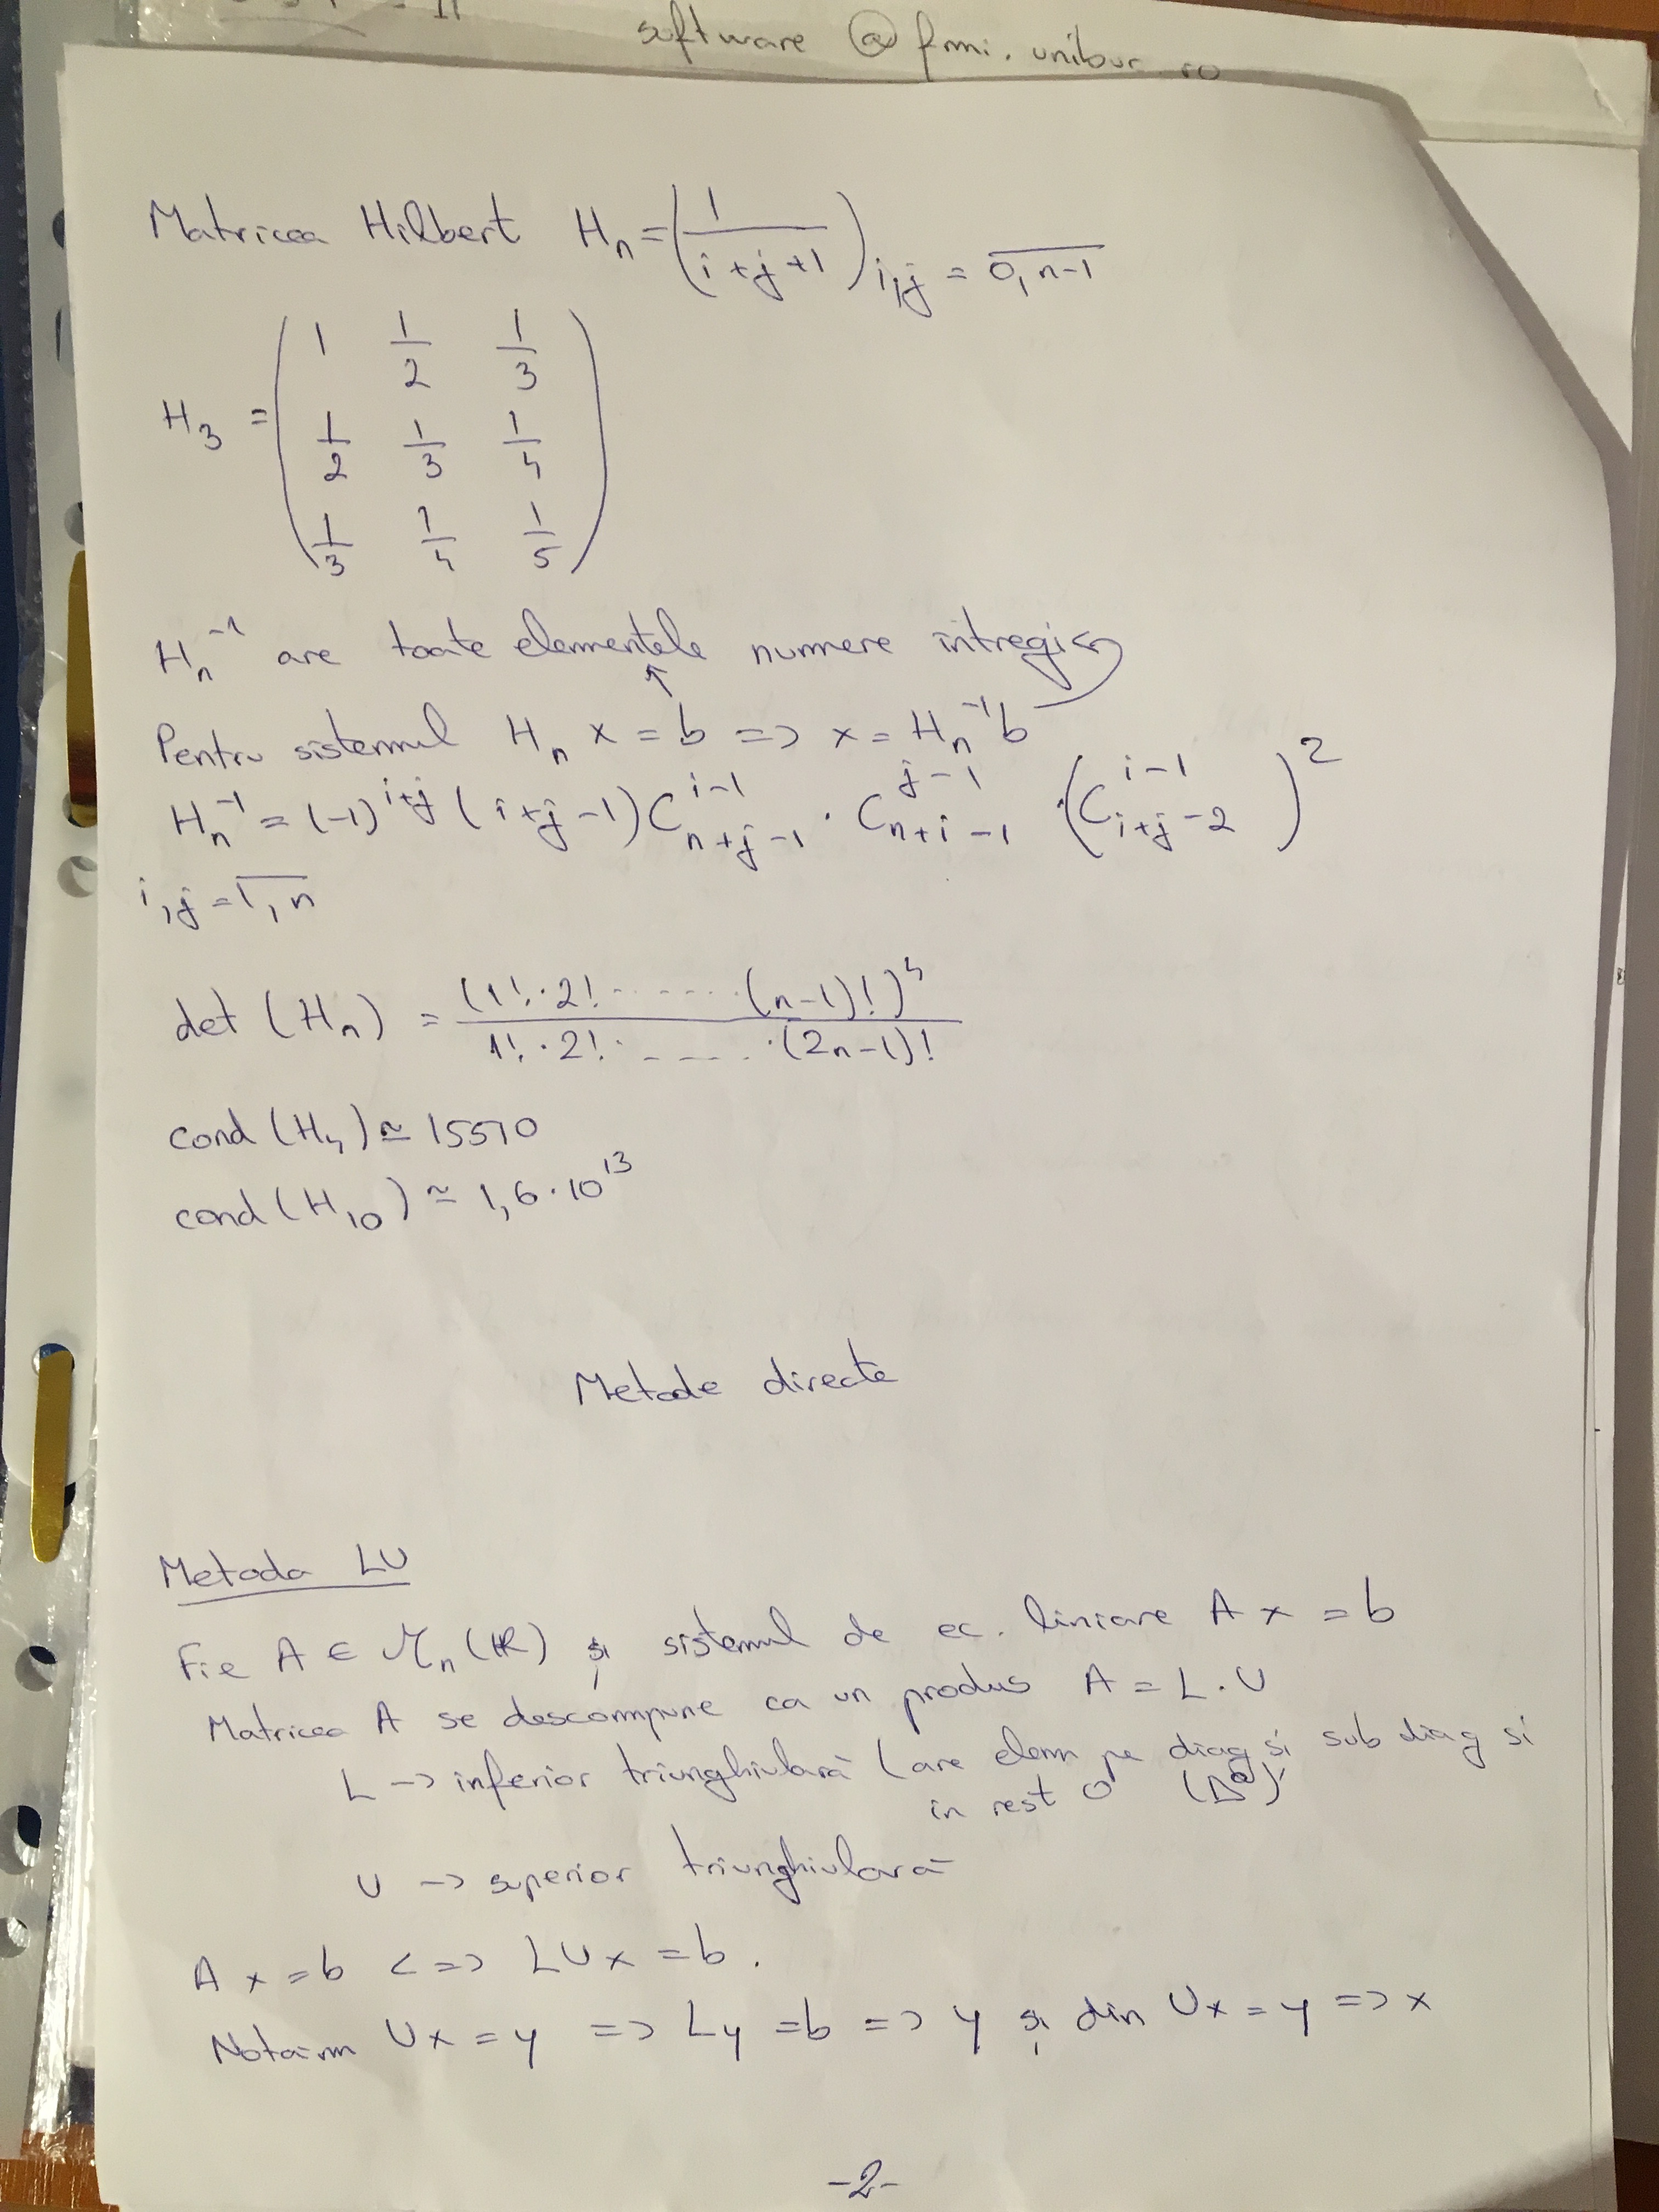 software @ fmi.unibuc.ro
Matricea Hilbert H_n = (1/(i+j+1))_{i,j = \overline{0,n-1}}
H_3 = (1 1/2 1/3
1/2 1/3 1/4
1/3 1/4 1/5)
H_n^{-1} are toate elementele numere intregi
Pentru sistemul H_n x = b => x = H_n^{-1} b
H_n^{-1} = (-1)^{i+j} (i+j-1) C_{n+j-1}^{i-1} · C_{n+i-1}^{j-1} · (C_{i+j-2}^{i-1})^2
i,j = \overline{1,n}
det (H_n) = (1! · 2! · ...... · (n-1)!)^4 / 1! · 2! · ...... · (2n-1)!
cond (H_4) ≃ 15510
cond (H_10) ≃ 1,6 · 10^13
Metode directe
Metoda LU
Fie A ∈ M_n(IR) și sistemul de ec. liniare Ax = b
Matricea A se descompune ca un produs A = L · U
L -> inferior triunghiulară (are elem pe diag și sub diag si
in rest 0
U -> superior triunghiulară
Ax = b <=> LUx = b.
Notăm Ux = y => Ly = b => y și din Ux = y => x
-2-